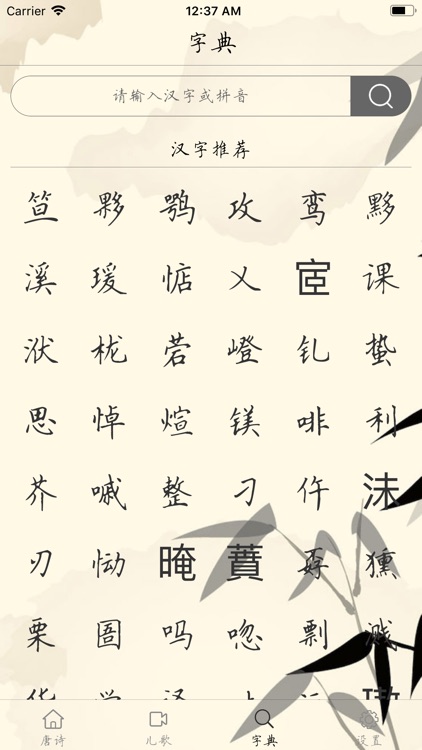 Carrier 12:37 AM
字典
请输入汉字或拼音
汉字推荐
笸 夥 鹗 攻 鸾 黟
溪 瑗 惦 乂 宧 课
洑 栊 菪 嶝 钆 蛰
思 悼 煊 镁 啡 利
芥 嘁 整 刁 仵 沬
刃 恸 晻 蕡 孬 獯
栗 圄 吗 唿 剽 溅
唐诗 儿歌 字典 设置